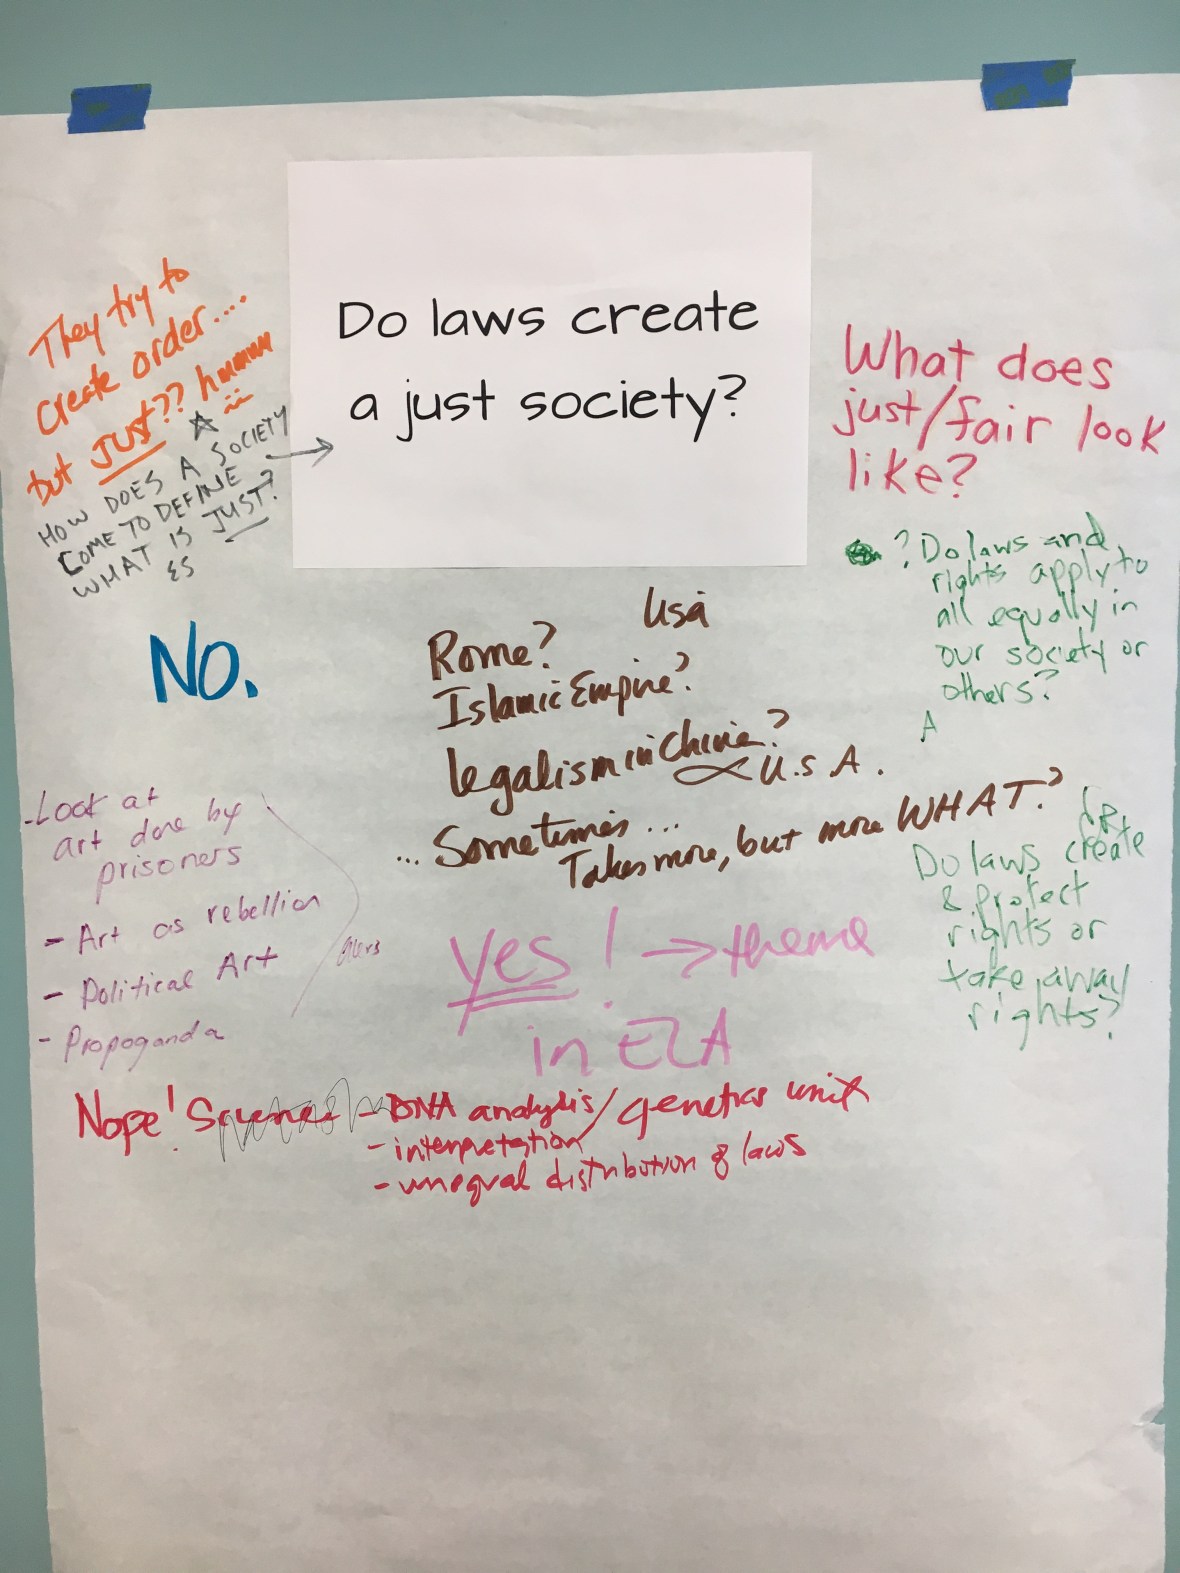 Do laws create
a just society?
They try to
create order....
but JUST?? hmmmm
HOW DOES A SOCIETY
COME TO DEFINE
WHAT IS JUST?
ES
What does
just/fair look
like?
? Do laws and
rights apply to
all equally in
our society or
others?
A
NO.
Usa
Rome?
Islamic Empire?
Legalism in China?
U.S A.
... Sometimes ...
Takes more, but more WHAT?
OR,
Do laws create
& protect
rights or
take away
rights?
-Look at
art done by
prisoners
- Art as rebellion
- Political Art
- Propoganda
yes! → theme
in ELA
Nope! Science - DNA analysis/genetics unit
- interpretation
- unequal distribution of laws